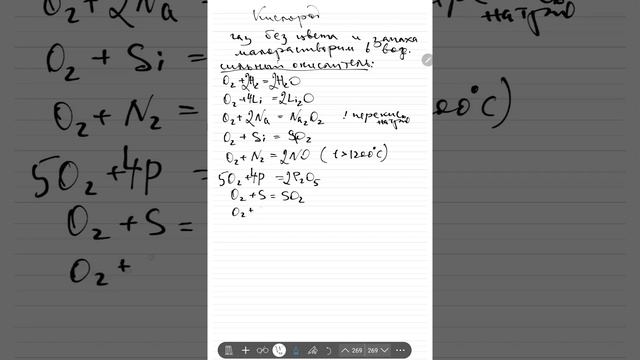 Кислород
газ без цвета и запаха
малорастворим в вод.
сильный окислитель:
O₂ + 2H₂ = 2H₂O
O₂ + 4Li = 2Li₂O
O₂ + 2Na = Na₂O₂ ! перекись натрия
O₂ + Si = SiO₂
O₂ + N₂ = 2NO (t > 1200°C)
5O₂ + 4P = 2P₂O₅
O₂ + S = SO₂
O₂ +
269 269